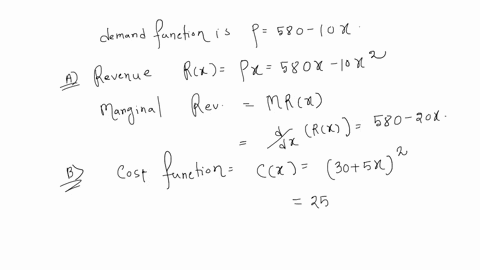 demand function is P = 580 - 10x.
A) Revenue R(x) = Px = 580x - 10x²
Marginal Rev. = MR(x)
= d/dx (R(x)) = 580 - 20x.
B) Cost function = C(x) = (30 + 5x)²
= 25